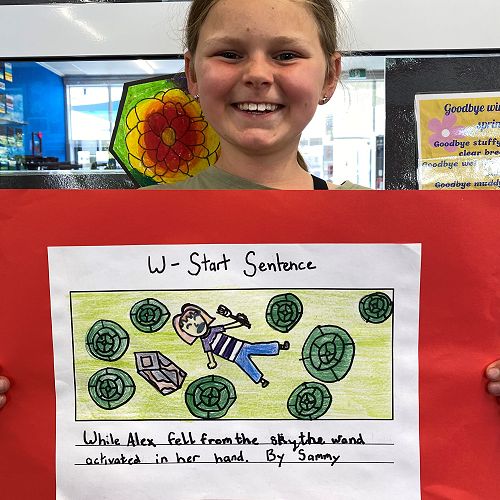 Goodbye wi
sprin
Goodbye stuffy
clear bre
Goodbye we
Goodbye muddy
W-Start Sentence
While Alex fell from the sky the wand
activated in her hand. By Sammy